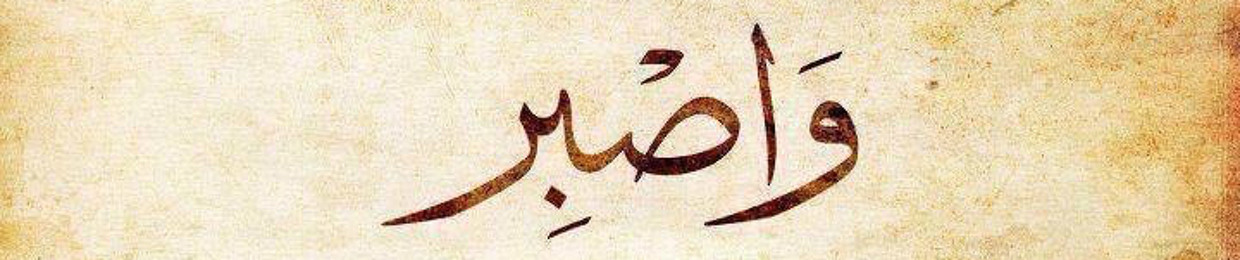 وَاصْبِر